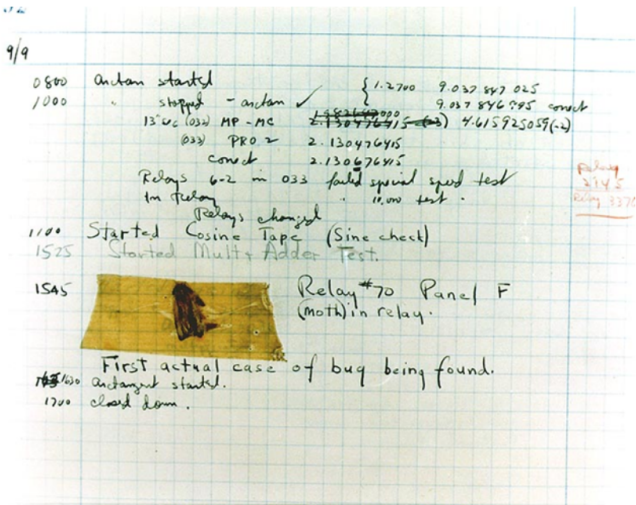 9/9
0800 antan started { 1.2700 9.037 847 025
1000 " stopped - antan ✓ 9.037 846 995 conect
13"uc (032) MP - MC 2.130476415 4.615925059(-2)
(033) PRO 2 2.130476415
conect 2.130676415
Relays 6-2 in 033 failed special speed test
In Relay " 10,000 test .
Relay
2145
Relay 3370
Relays changed
1100 Started Cosine Tape (Sine check)
1525 Started Mult + Adder Test.
1545 Relay #70 Panel F
(moth) in relay.
First actual case of bug being found.
1630 antangent started.
1700 closed down.